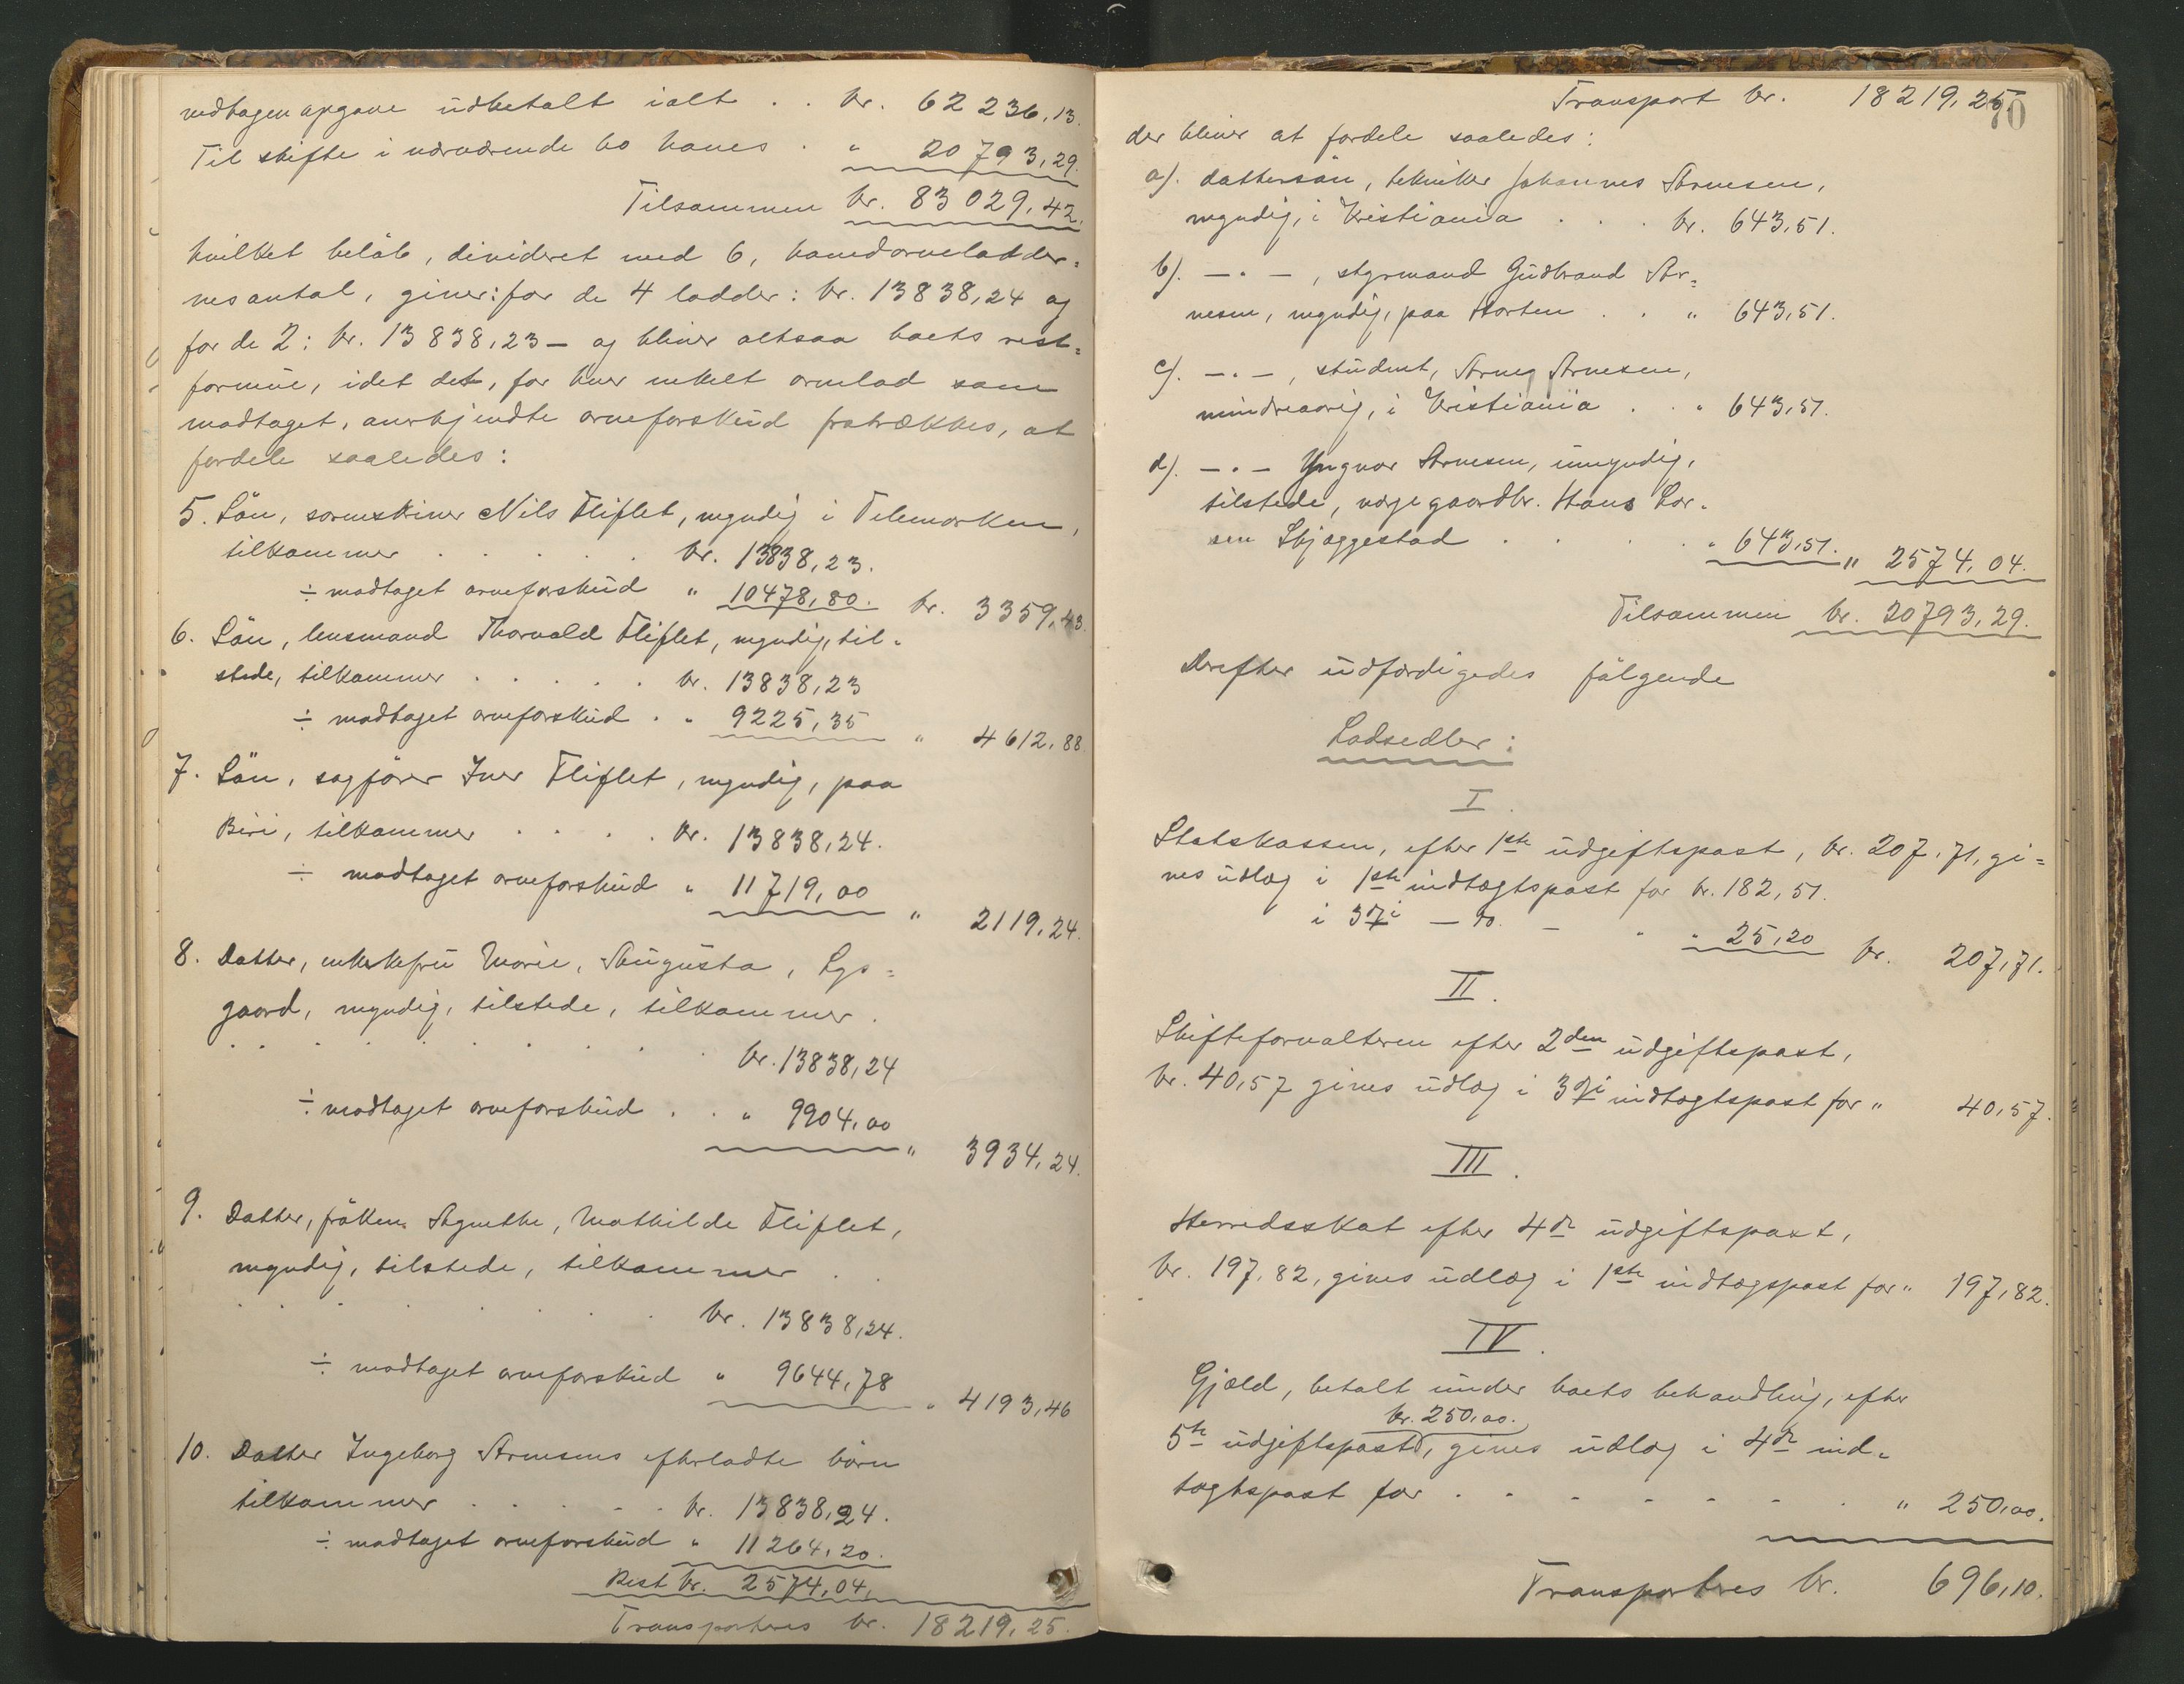 modtagen opgave udbetalt ialt . . kr. 62 236,13.
Til skifte i nærværende bo haves . " 20 793,29.
Tilsammen kr. 83 029,42.
hvilket beløb, divideret med 6, hovedarveladder=
nes antal, giver: for de 4 lodder: kr. 13 838,24 og
for de 2: kr. 13 838,23 — og bliver altsaa boets rest=
formue, idet det, for hver enkelt arvelod som
modtaget, anerkjendte arveforskud fratrækkes, at
fordele saaledes:
5. Sön, sorenskriver Nils Fliflet, myndig i Telemarken,
tilkommer . . . . . kr. 13838,23.
÷ modtaget arveforskud " 10478,80. kr. 3359,43.
6. Sön, lensmand Thorvald Fliflet, myndig, til=
stede, tilkommer . . . . . kr. 13838,23
÷ modtaget arveforskud . " 9225,35 " 4612,88.
7. Sön, sagfører Iver Fliflet, myndig, paa
Biri, tilkommer . . . . kr. 13838,24.
÷ modtaget arveforskud " 11719,00 " 2119,24.
8. Datter, enkefru Marie, Augusta, Lys=
gaard, myndig, tilstede, tilkommer .
. . . . . . . . . kr. 13838,24
÷ modtaget arveforskud . . " 9904,00 " 3934,24.
9. Datter, fröken Agnethe, Mathilde Fliflet,
myndig, tilstede, tilkommer . .
. . . . . . . . kr. 13838,24.
÷ modtaget arveforskud " 9644,78 " 4193,46
10. Datter Ingeborg Arnesens efterladte börn
tilkommer . . . . . kr. 13838,24.
÷ modtaget arveforskud " 11264,20.
Rest kr. 2574,04.
Transporteres kr. 18219,25.
70
Transport kr. 18219,25.
der bliver at fordele saaledes:
a). dattersön, tekniker Johannes Arnesen,
myndig, i Kristiania . . . kr. 643,51.
b). — " — , styrmand Gudbrand Ar=
nesen, myndig, paa Horten . . " 643,51.
c). — " — , student, Arne Arnesen,
mindreaarig, i Kristiania . . " 643,51.
d). — " — Yngvar Arnesen, umyndig,
tilstede, værge gaardbr. Hans Lar=
sen Skjæggestad . . . . " 643,51. " 2574,04.
Tilsammen kr. 20793,29.
Derefter udfærdigedes fölgende
Lodsedler:
I.
Statskassen, efter 1ste udgiftspost, kr. 207,71, gi=
ves udlæg i 1ste indtægtspost for kr. 182,51.
i 3die — do. — " " 25,20 kr. 207,71.
II.
Skifteforvalteren efter 2den udgiftspost,
kr. 40,57 gives udlæg i 3die indtægtspost for " 40,57.
III.
Herredsskat efter 4de udgiftspost,
kr. 197,82, gives udlæg i 1ste indtægspost for " 197,82.
IV.
Gjæld, betalt under boets behandling, efter
kr. 250,00.
5te udgiftspost, gives udlæg i 4de ind=
tægtspost for . . . . . . . " 250,00.
Transporteres kr. 696,10.